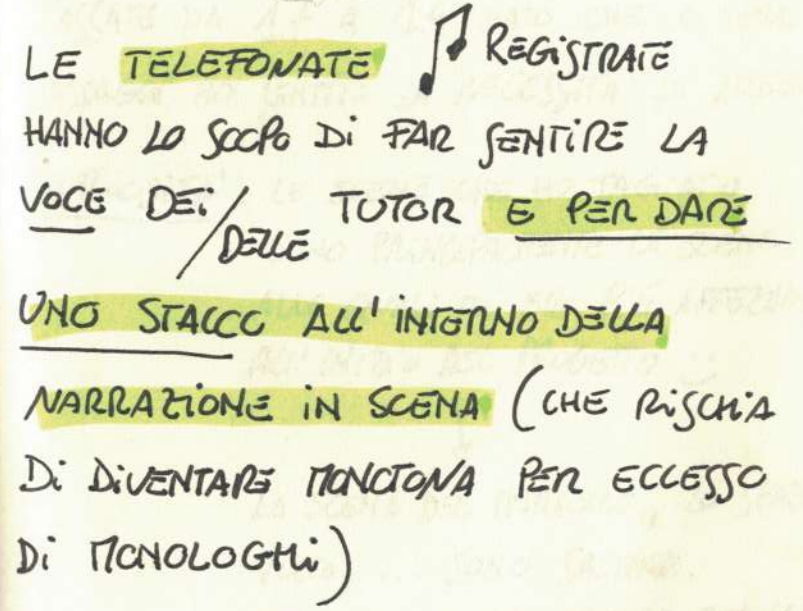 LE TELEFONATE REGISTRATE
HANNO LO SCOPO DI FAR SENTIRE LA
VOCE DEI/DELLE TUTOR E PER DARE
UNO STACCO ALL'INTERNO DELLA
NARRAZIONE IN SCENA (CHE RISCHIA
DI DIVENTARE MONOTONA PER ECCESSO
DI MONOLOGHI)